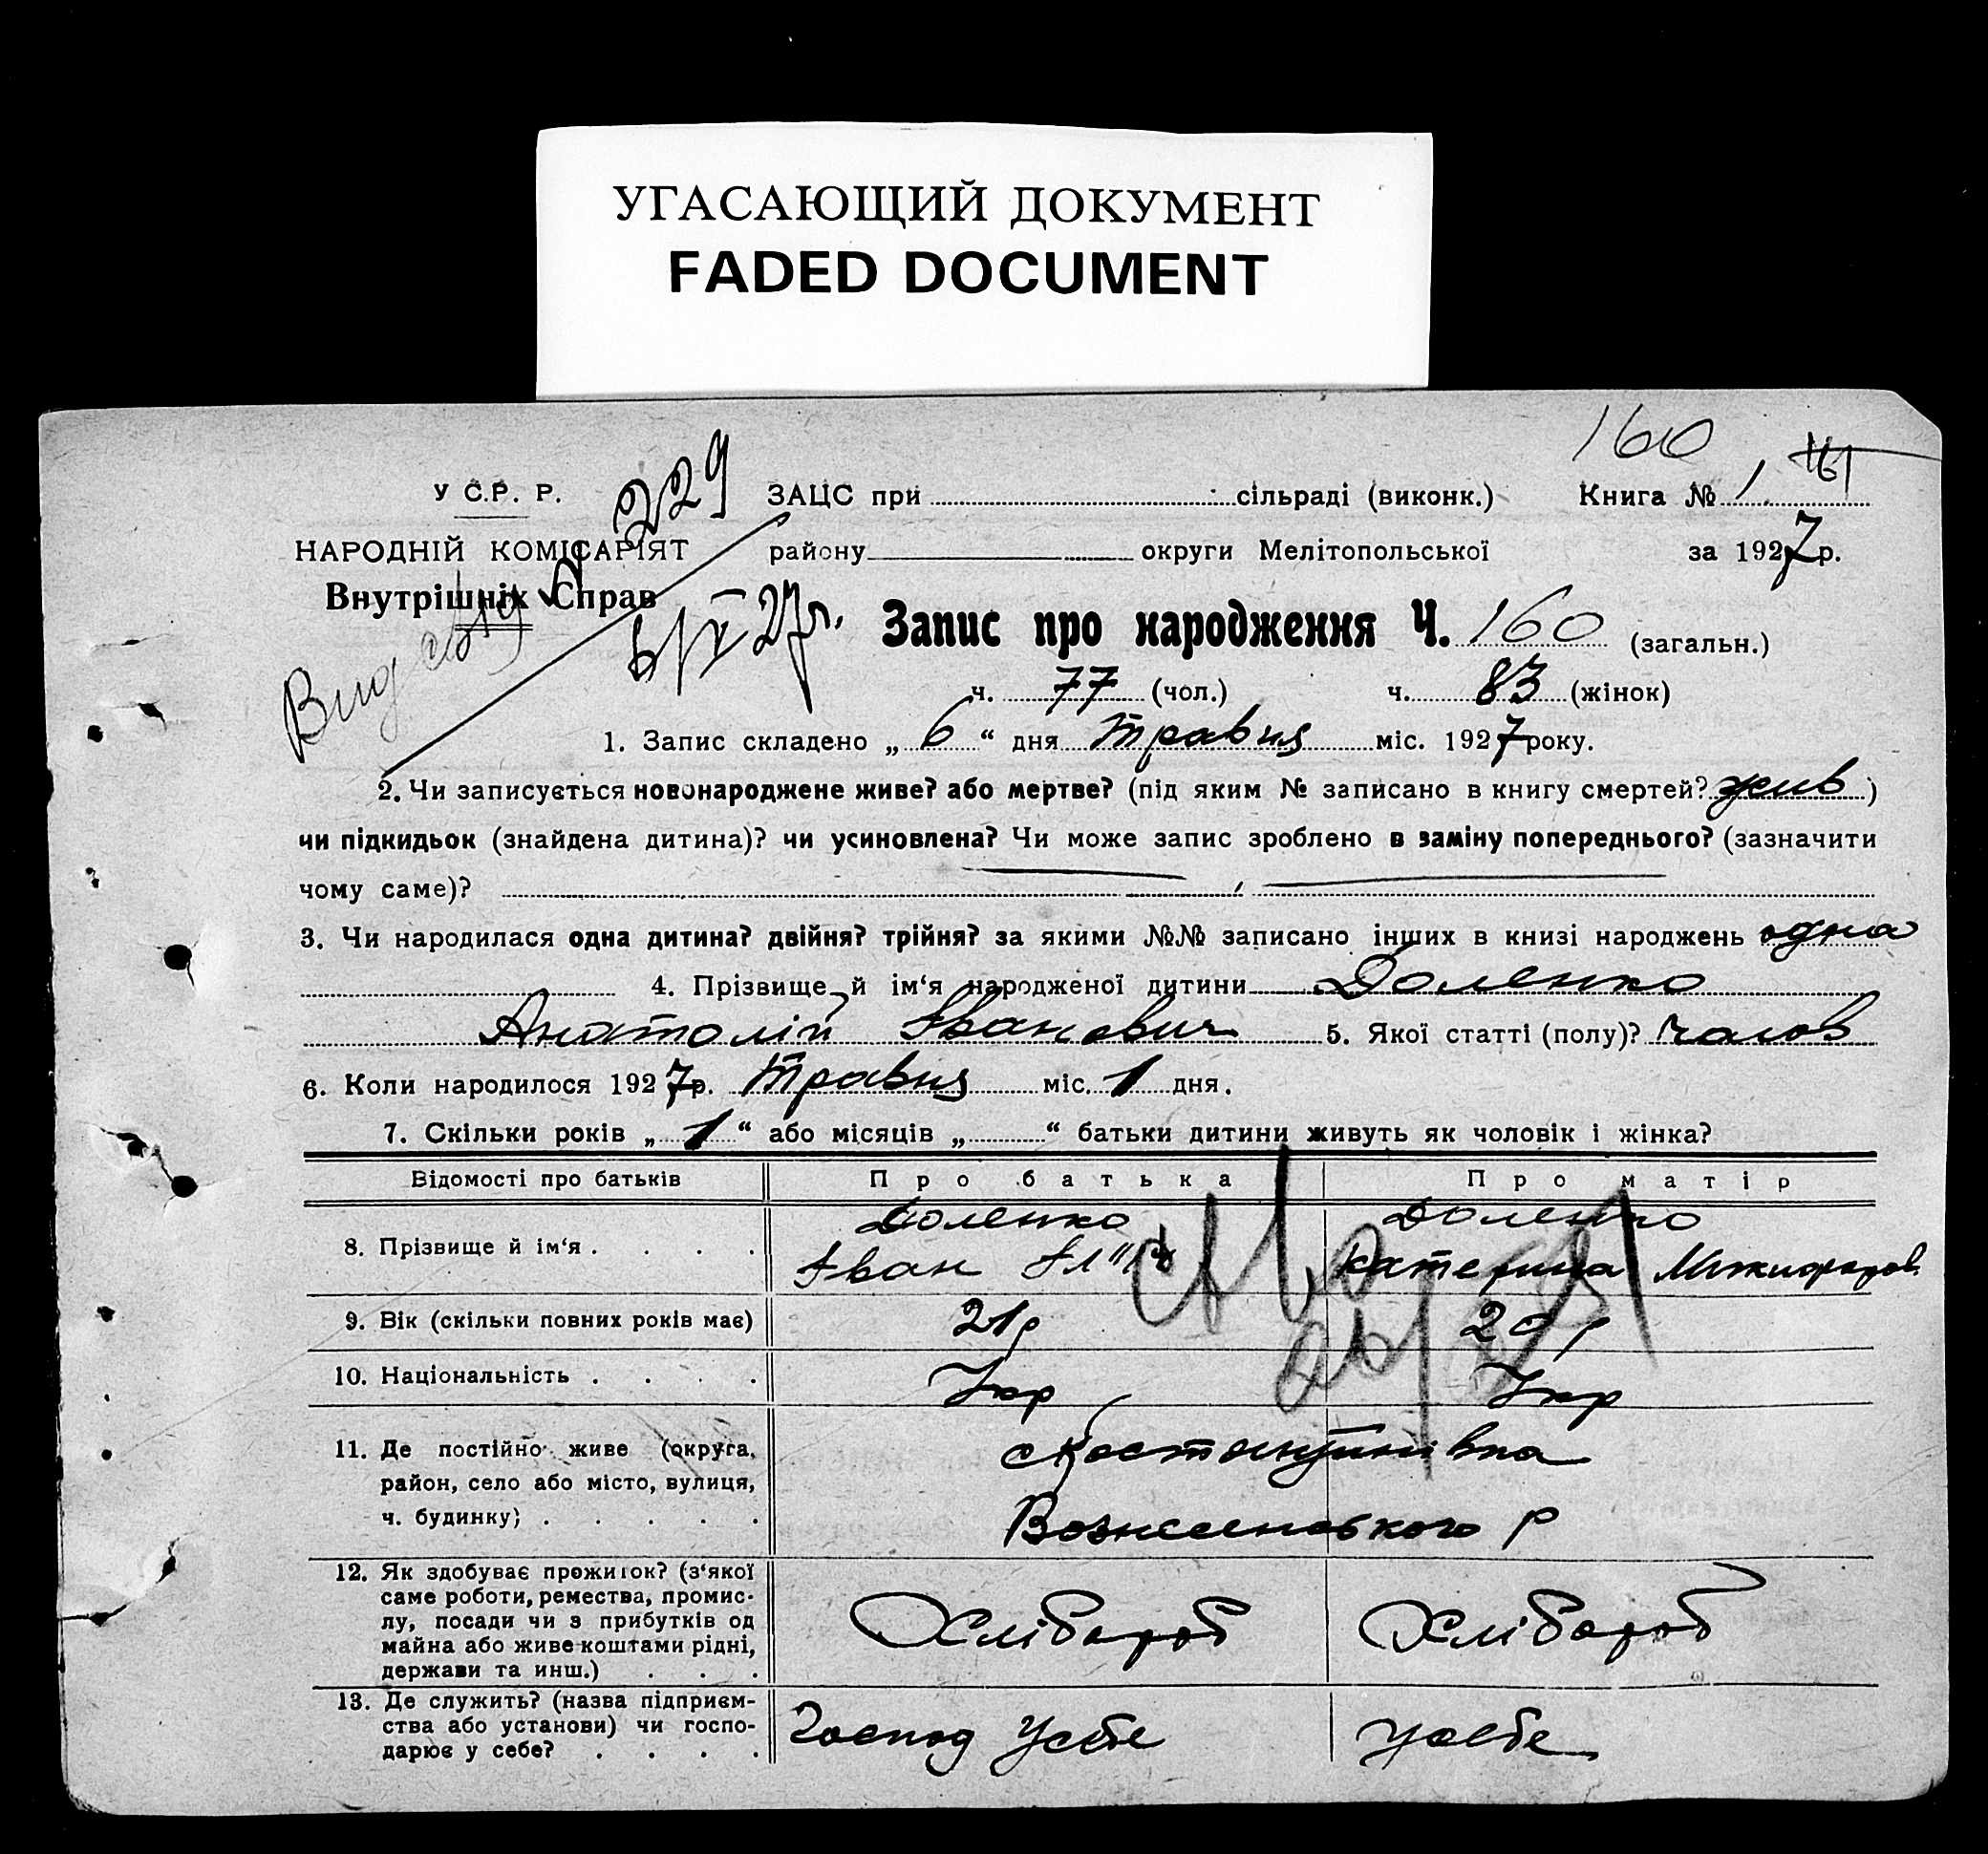 УГАСАЮЩИЙ ДОКУМЕНТ
FADED DOCUMENT
160
161
У С.Р. Р. 229 ЗАЦС при сільраді (виконк.) Книга № 1
НАРОДНІЙ КОМІСАРІЯТ району округи Мелітопольської за 1927 р.
Внутрішніх Справ
6/V 27 р. Запис про народження Ч. 160 (загальн.)
ч. 77 (чол.) ч. 83 (жінок)
1. Запис складено „ 6 “ дня травня міс. 1927 року.
2. Чи записується новонароджене живе? або мертве? (під яким № записано в книгу смертей? жив )
чи підкидьок (знайдена дитина)? чи усиновлена? Чи може запис зроблено в заміну попереднього? (зазначити
чому саме)?
3. Чи народилася одна дитина? двійня? трійня? за якими №№ записано інших в книзі народжень одна
4. Прізвище й ім‘я народженої дитини Доленко
Анатолій Іванович 5. Якої статті (полу)? чолов
6. Коли народилося 1927 р. травня міс. 1 дня.
7. Скільки років „ 1 “ або місяців „ “ батьки дитини живуть як чоловік і жінка?
Відомості про батьків Про батька Про матір
8. Прізвище й ім‘я . . . . Доленко Доленко
Іван Катерина
9. Вік (скільки повних років має) 21 р 20 р
10. Національність . . . . Укр Укр
11. Де постійно живе (округа,
район, село або місто, вулиця,
ч. будинку) . . . . .
с Костянтинівка
Вознесенського р
12. Як здобуває прожиток? (з‘якої
саме роботи, ремества, промис-
лу, посади чи з прибутків од
майна або живе коштами рідні,
держави та инш.) . . .
Хлібороб Хлібороб
13. Де служить? (назва підприєм-
ства або установи) чи госпо-
дарює у себе? . . . .
Господ у себе у себе